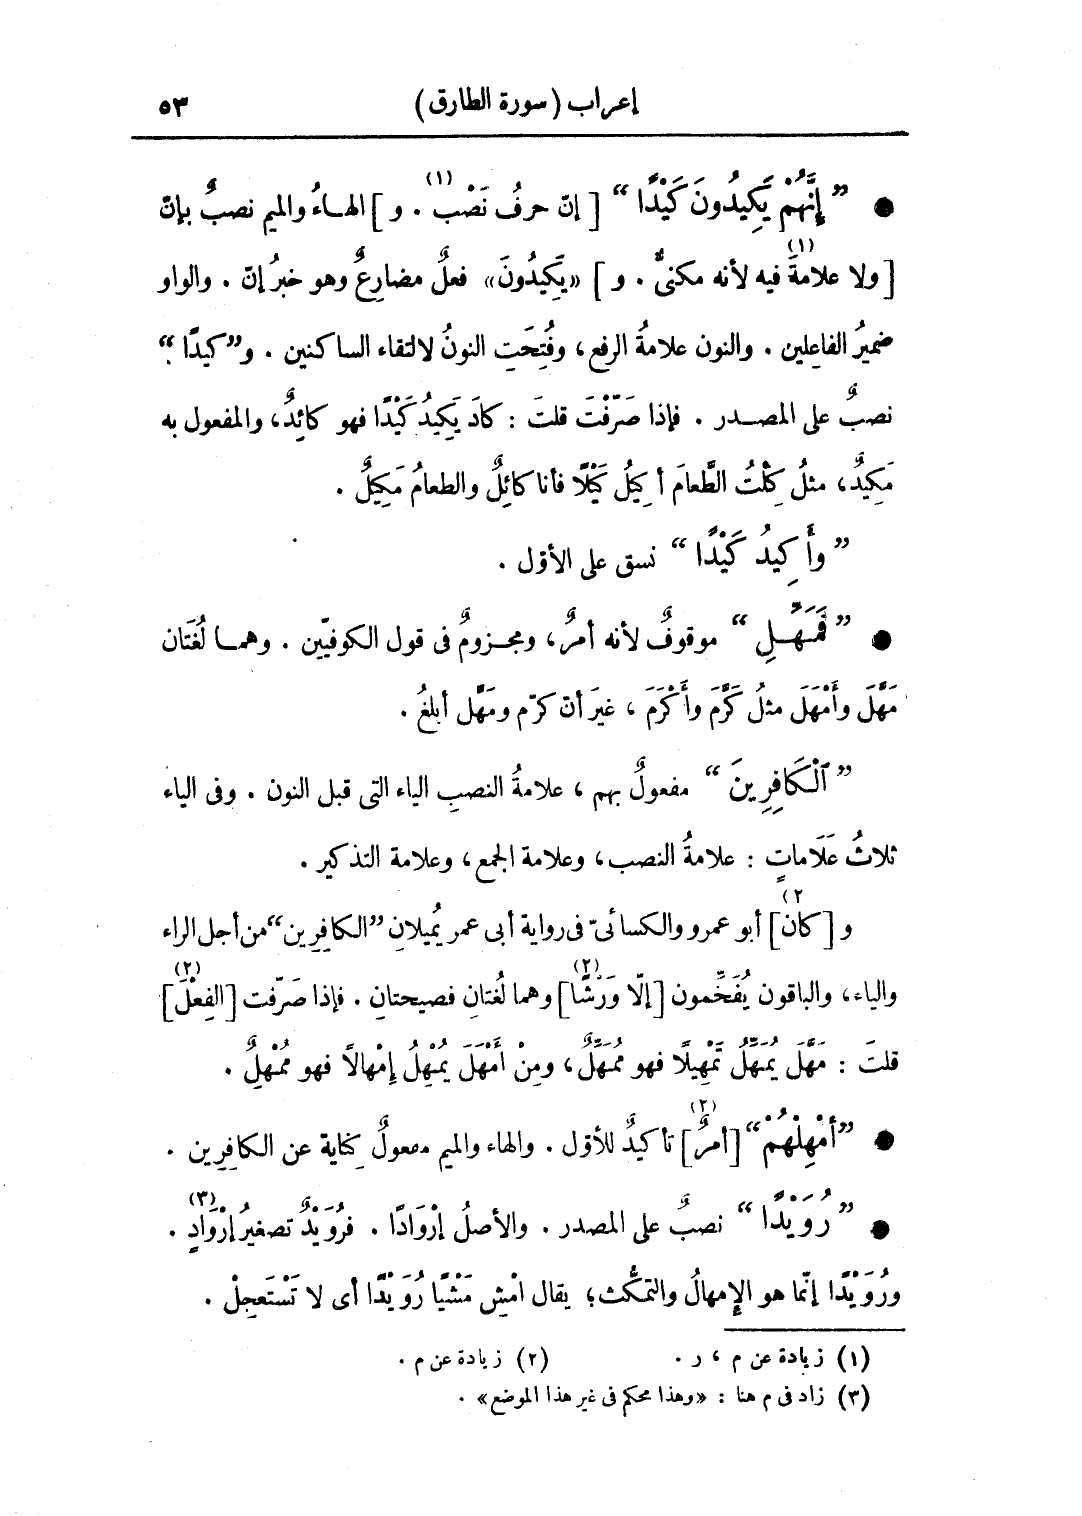 إعراب (سورة الطارق) ٥٣
● ”إِنَّهُمْ يَكِيدُونَ كَيْدًا“ [إنّ حرفُ نَصْب(١) . و] الهاءُ والميم نصبٌ بإنّ
[ولا علامةَ(١) فيه لأنه مكنىٌّ . و] «يَكِيدُونَ» فعلٌ مضارعٌ وهو خبرُ إنّ . والواو
ضميرُ الفاعلين . والنون علامةُ الرفع، وفُتِحَتِ النونُ لالتقاء الساكنين . و”كيدًا“
نصبٌ على المصدر . فإذا صَرّفْتَ قلتَ : كادَ يَكِيدُ كَيْدًا فهو كائِدٌ، والمفعول به
مَكِيدٌ، مثلُ كِلْتُ الطَّعامَ أكِيلُ كَيْلًا فأنا كائِلٌ والطعامُ مَكِيلٌ .
”وأَكِيدُ كَيْدًا“ نسق على الأوّل .
● ”فَمَهِّلِ“ موقوفٌ لأنه أمرٌ، ومجزومٌ فى قول الكوفيّين . وهما لُغَتَان
مَهَّلَ وأَمْهَلَ مثلُ كَرَّمَ وأَكْرَمَ ، غيرَ أنّ كرّم ومَهَّل أبلغُ .
”ٱلْكَافِرِينَ“ مفعولٌ بهم ، علامةُ النصبِ الياء التى قبل النون . وفى الياء
ثلاثُ عَلَاماتٍ : علامةُ النصب، وعلامة الجمع، وعلامة التذكير .
و [كان](٢ أبو عمرو والكسائىّ فى رواية أبى عمر يُميلانِ ”الكافِرِين“ من أجل الراء
والياء، والباقون يُفَخِّمون [إلّا وَرْشًا](٢) وهما لُغتانِ فصيحتانِ . فإذا صَرّفت [الفِعْلَ](٢)
قلتَ : مَهَّلَ يُمَهِّلُ تَمْهِيلًا فهو مُمَهِّلٌ، ومِنْ أَمْهَلَ يُمْهِلُ إمْهالاً فهو مُمْهِلٌ .
● ”أَمْهِلْهُمْ“ [أمرٌ](٢) تأكيدٌ للأوّل . والهاء والميم مفعولٌ كِناية عن الكافِرِين .
● ”رُوَيْدًا“ نصبٌ على المصدر . والأصلُ إرْوَادًا . فرُوَيْدٌ تصغيرُ إرْوَادٍ(٣) .
ورُوَيْدًا إنّما هو الإمهالُ والتمكُّث؛ يقال امْشِ مَشْيًا رُوَيْدًا أى لا تَسْتَعجِلْ .
(١) زيادة عن م ، ر . (٢) زيادة عن م .
(٣) زاد فى م هنا : «وهذا محكم فى غير هذا الموضع» .